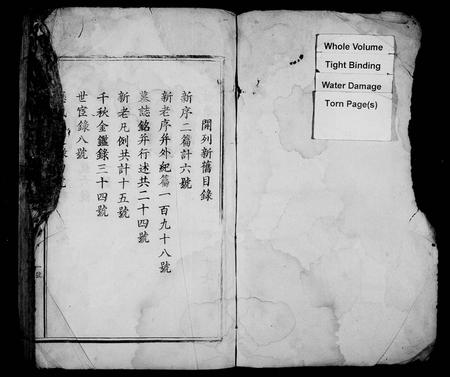 開列新舊目錄
新序二篇計六號
新老序并外紀篇一百九十八號
墓誌銘并行述共二十四號
新老凡例共計十五號
千秋金鑑錄三十四號
世宦錄八號
Whole Volume
Tight Binding
Water Damage
Torn Page(s)